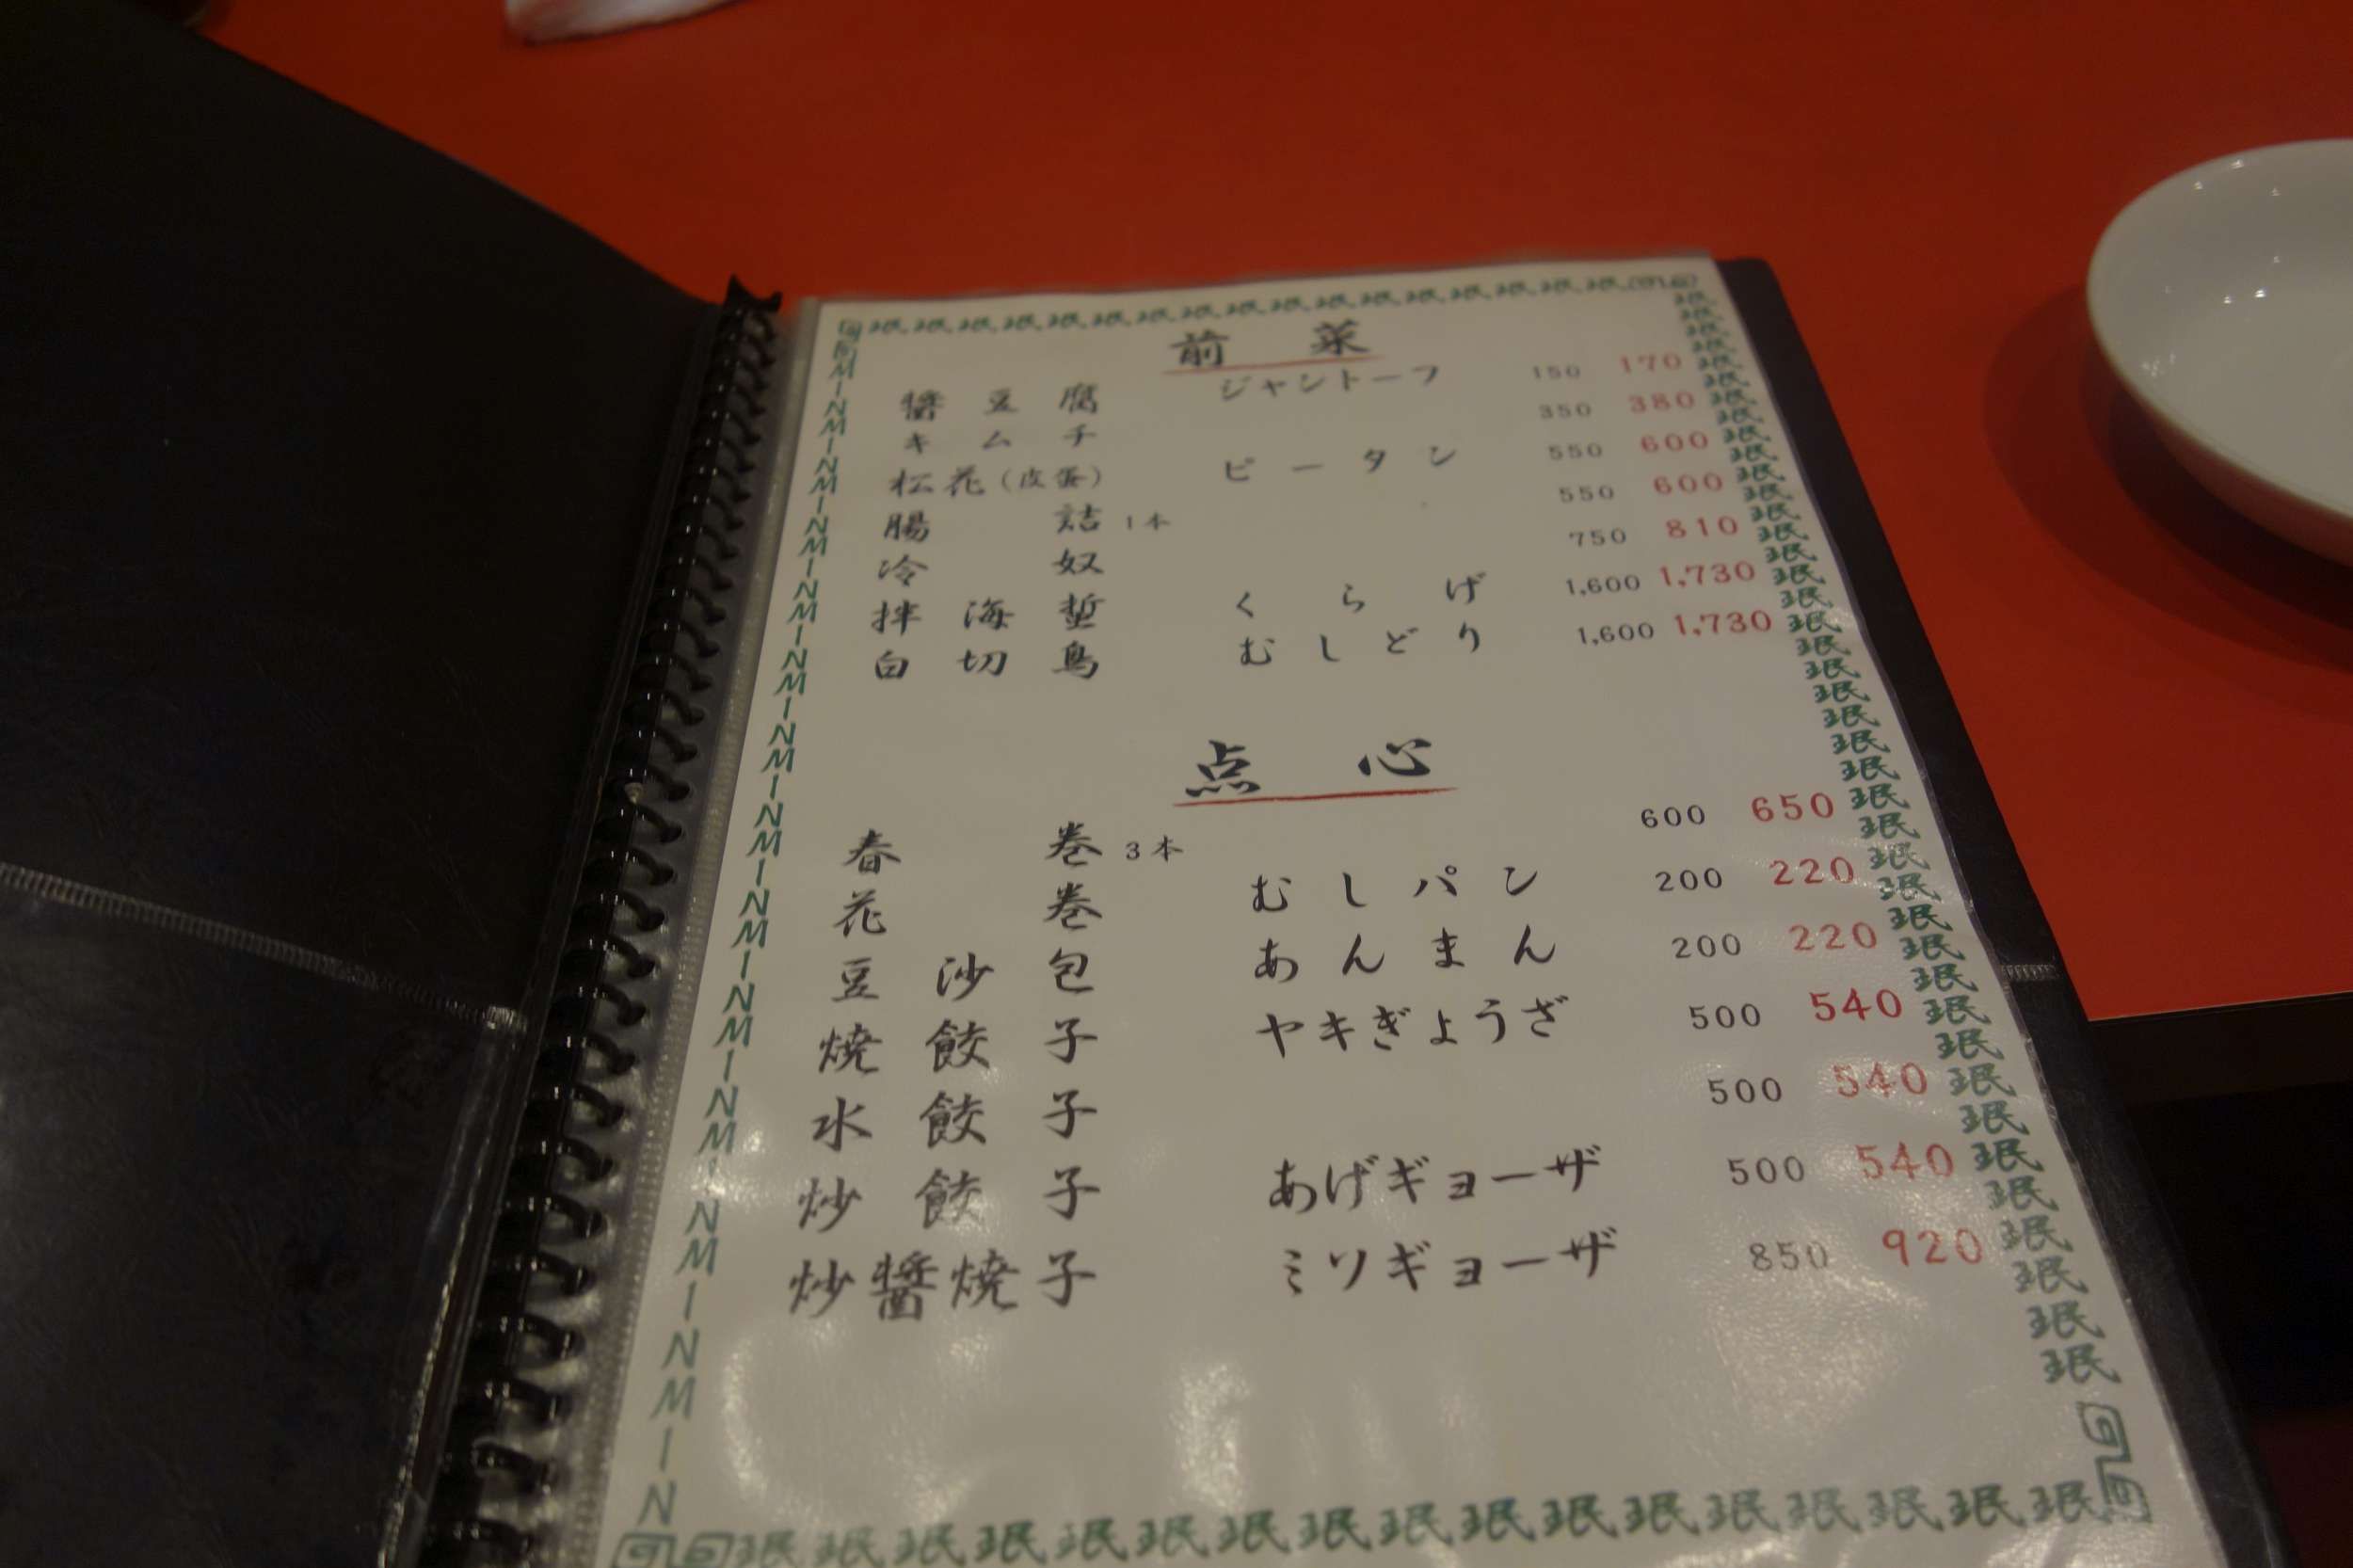 前菜
醬豆腐 ジャントーフ 150 170
キムチ 350 380
松花(皮蛋) ピータン 550 600
腸詰 1本 550 600
冷奴 750 810
拌海蜇 くらげ 1,600 1,730
白切鳥 むしどり 1,600 1,730
点心
春巻 3本 600 650
花巻 むしパン 200 220
豆沙包 あんまん 200 220
焼餃子 ヤキぎょうざ 500 540
水餃子 500 540
炒餃子 あげギョーザ 500 540
炒醬焼子 ミソギョーザ 850 920
MINMINMINMINMINMINMINMINMINMINMINMIN
珉珉珉珉珉珉珉珉珉珉珉珉珉珉珉珉珉